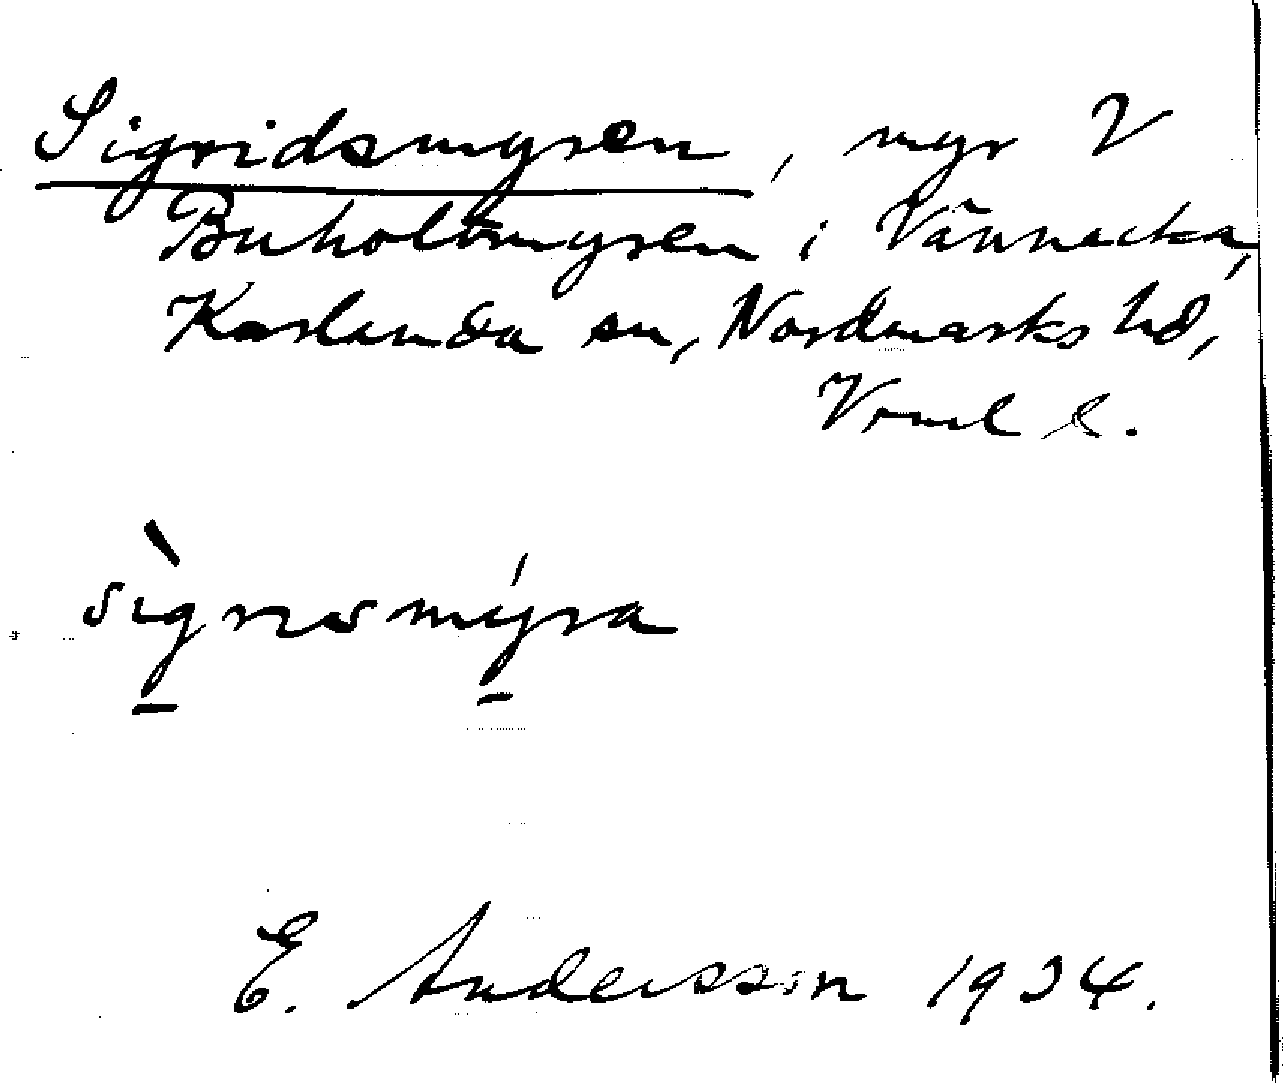 Sigridsmyren, myr V
Buholtmyren i Vännacka,
Karlanda sn, Nordmarks hd,
Vrml l.
sìgrɩsmýra
E. Andersson 1934.